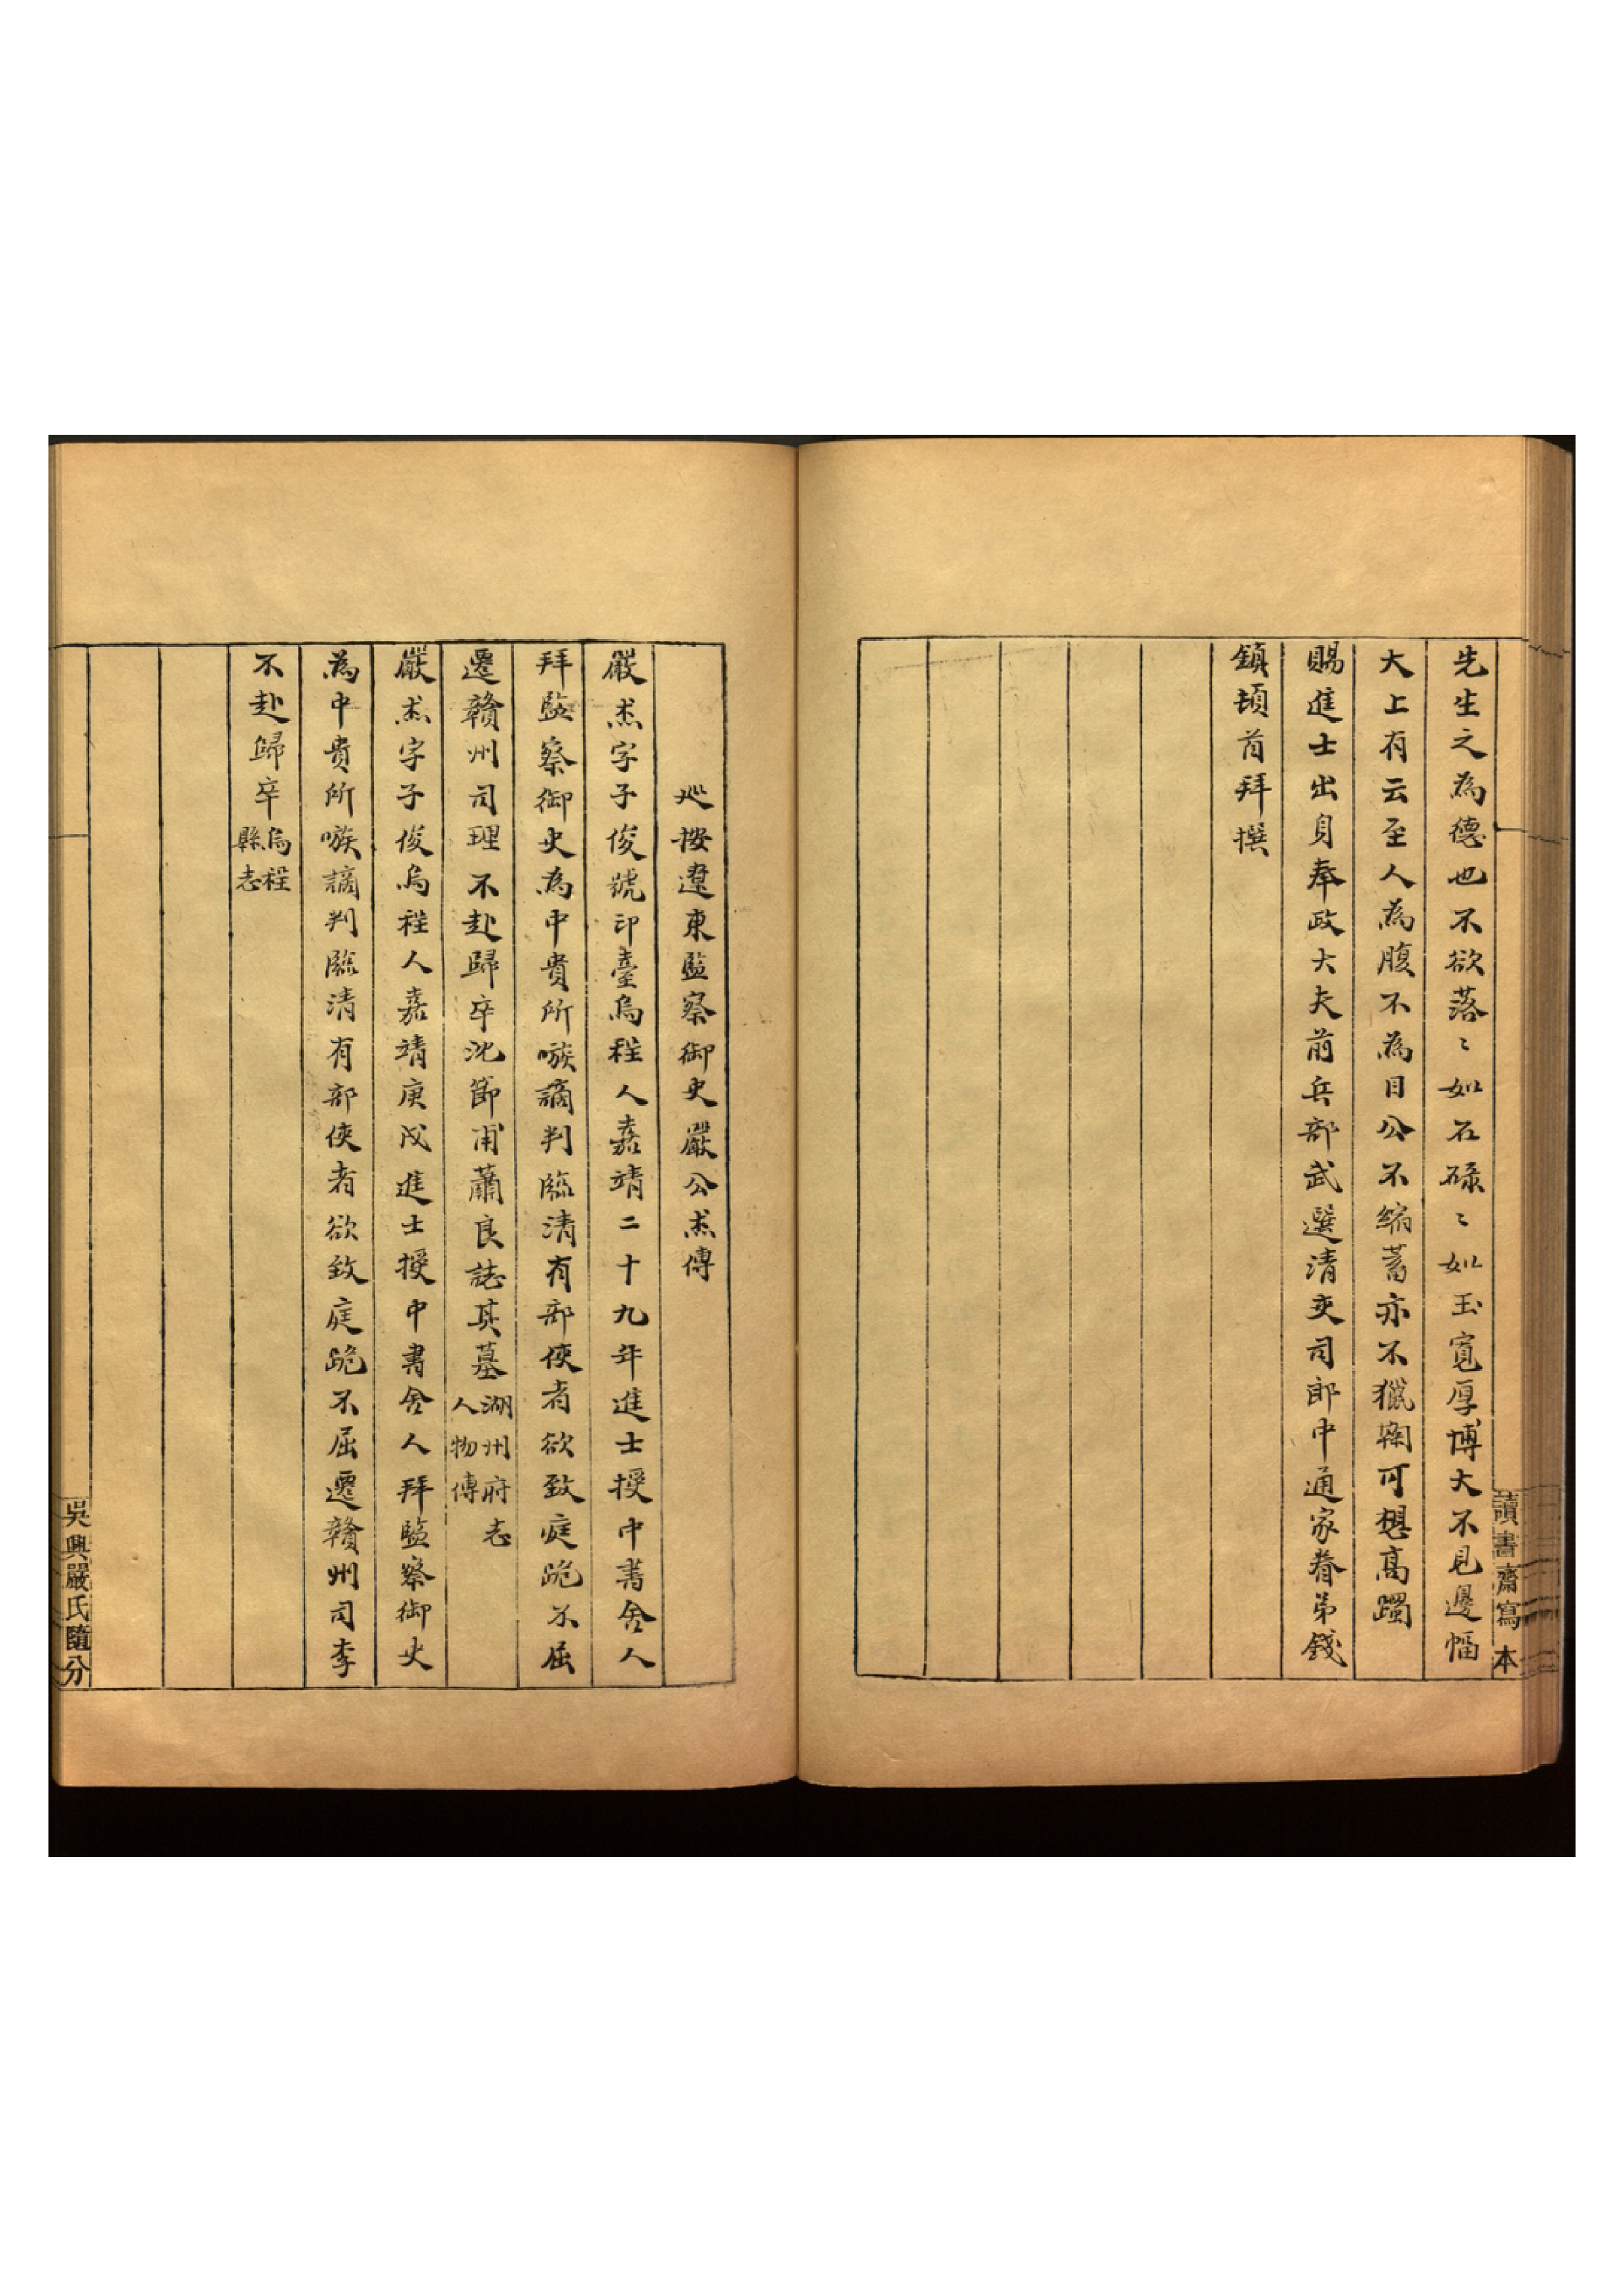 先生之為德也不欲落〻如石碌〻如玉寬厚博大不見邊幅
大上有云至人為腹不為目公不縮蓄亦不獵鞠可想高躅
賜進士出身奉政大夫前兵部武選清吏司郎中通家眷弟錢
鎮頓首拜撰
讀書齋寫本
巡按遼東監察御史嚴公杰傳
嚴杰字子俊號印臺烏程人嘉靖二十九年進士授中書舍人
拜監察御史為中貴所嗾謫判臨清有部使者欲致庭跪不屈
遷贛州司理不赴歸卒沈節甫蕭良誌其墓湖州府志人物傳
嚴杰字子俊烏程人嘉靖庚戌進士授中書舍人拜監察御史
為中貴所嗾謫判臨清有部使者欲致庭跪不屈遷贛州司李
不赴歸卒烏程縣志
吳興嚴氏隨分